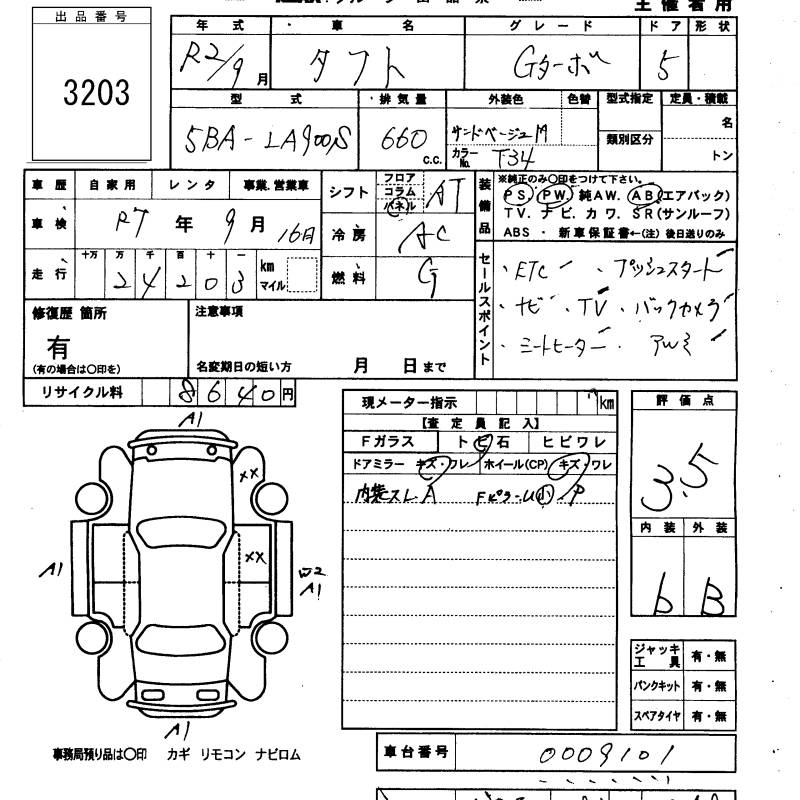 主催者用
出品番号
3203
年式 ・ 車名 グレード ドア 形状
R2/9月 タフト Gターボ 5
型式 ・排気量 外装色 色替 型式指定 定員・積載
5BA-LA900S 660 c.c. サンドベージュM 類別区分 名
カラーNo. T34 トン
車歴 自家用 レンタ 事業.営業車 シフト フロア コラム パネル AT
車検 R7年9月16日 冷房 AC
走行 十万 万 千 百 十 一 km マイル 燃料 G
24203
装備品 ※純正のみ○印をつけて下さい。
PS. PW. 純AW. AB(エアバック)
TV. ナビ. カワ. SR(サンルーフ)
ABS ・ 新車保証書←(注) 後日送りのみ
セールスポイント
・ETC ・プッシュスタート
・ナビ ・TV ・バックカメラ
・シートヒーター ・アルミ
修復歴 箇所 注意事項
有
(有の場合は○印を) 名変期日の短い方 月 日まで
リサイクル料 8640円
現メーター指示 km
【査定員記入】
Fガラス トビ石 ヒビワレ
ドアミラー キズ・ワレ ホイール(CP) キズ・ワレ
内装スレ.A Fピラー U小 P
評価点
3.5
内装 外装
b B
A1
XX
XX
A1
W2
A1
A1
ジャッキ工具 有・無
パンクキット 有・無
スペアタイヤ 有・無
事務局預り品は○印 カギ リモコン ナビロム
車台番号 0009101